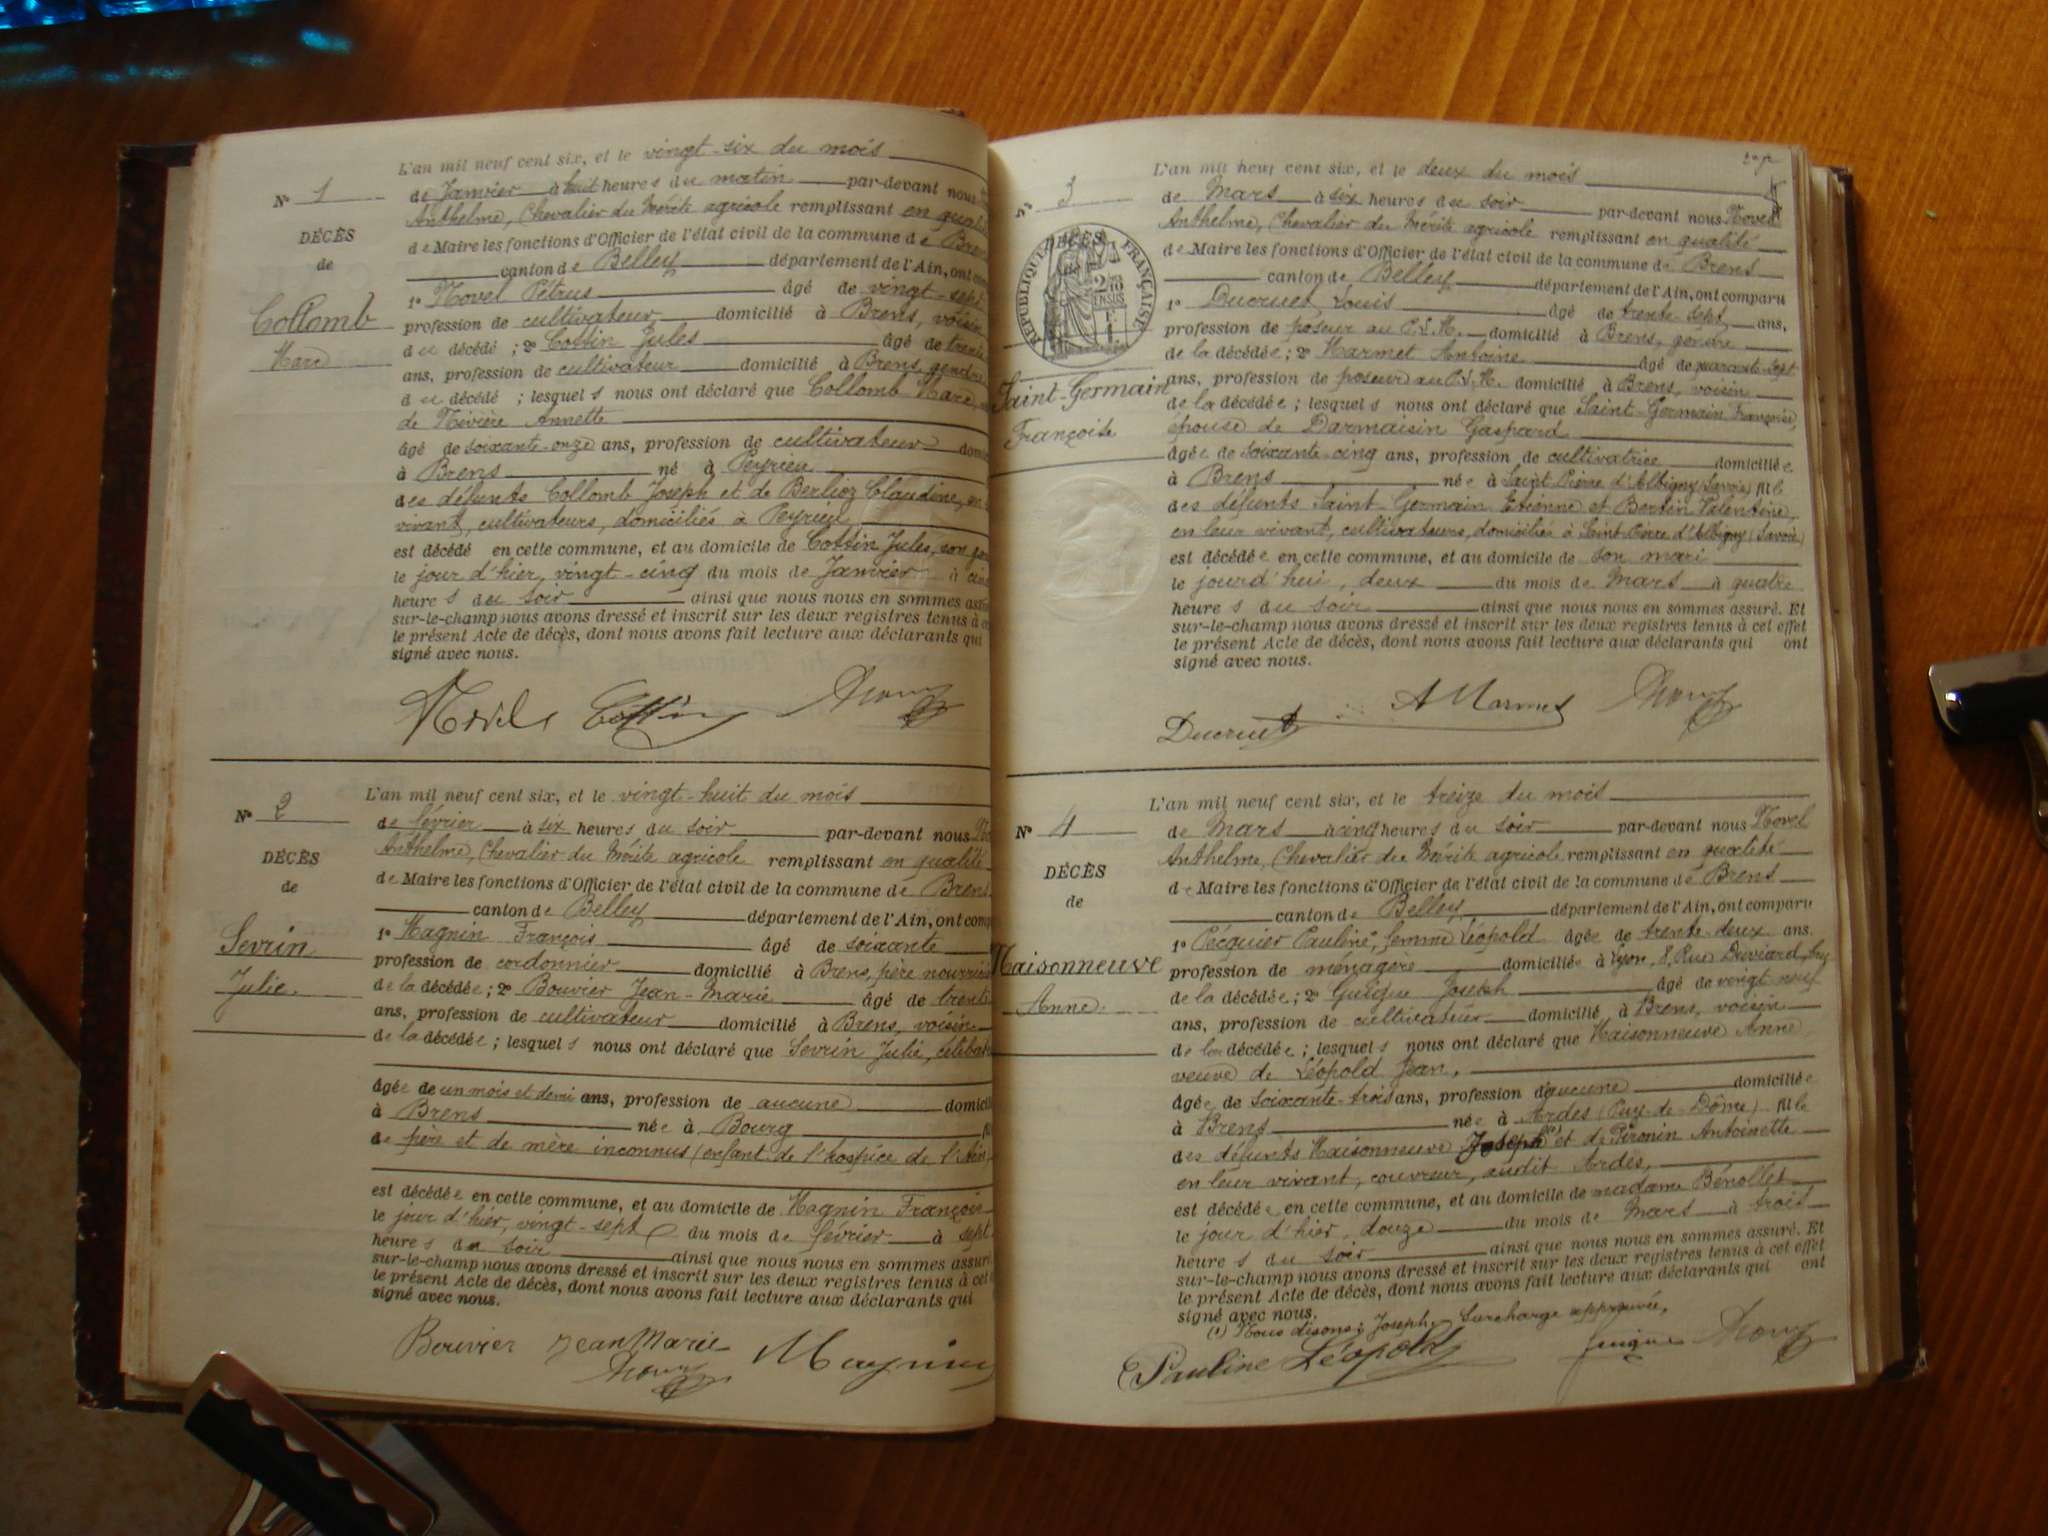 L'an mil neuf cent six, et le vingt-six du mois
Nº 1 de Janvier à huit heures du matin par-devant nous
Anthelme, Chevalier du Mérite agricole remplissant en qualité
DÉCÈS
de Maire les fonctions d'Officier de l'état civil de la commune de Brens
de
canton de Belley département de l'Ain, ont
1º Novel Pétrus âgé de vingt-sept
Collomb
profession de cultivateur domicilié à Brens, voisin
Marc
du décédé ; 2º Cottin Jules âgé de trente
ans, profession de cultivateur domicilié à Brens, gendre
du décédé ; lesquels nous ont déclaré que Collomb Marc,
de Rivière Annette
âgé de soixante-onze ans, profession de cultivateur
à Brens né à Peyrieu
des défunts Collomb Joseph et de Berlioz Claudine, en
vivant, cultivateurs, domiciliés à Peyrieu
est décédé en cette commune, et au domicile de Cottin Jules, son
le jour d'hier, vingt-cinq du mois de Janvier à cinq
heures du soir ainsi que nous nous en sommes
sur-le-champ nous avons dressé et inscrit sur les deux registres tenus à
le présent Acte de décès, dont nous avons fait lecture aux déclarants qui
signé avec nous.
Cottin
L'an mil neuf cent six, et le vingt-huit du mois
Nº 2 de février à six heures du soir par-devant nous
Anthelme, Chevalier du Mérite agricole remplissant en qualité
DÉCÈS
de Maire les fonctions d'Officier de l'état civil de la commune de Brens
de
canton de Belley département de l'Ain, ont
1º Magnin François âgé de soixante
Sevrin
profession de cordonnier domicilié à Brens, père nourricier
Julie.
de la décédée ; 2º Bouvier Jean-Marie âgé de trente
ans, profession de cultivateur domicilié à Brens, voisin
de la décédée ; lesquels nous ont déclaré que Sevrin Julie,
âgée de un mois et demi ans, profession de aucune
à Brens née à Bourg
de père et de mère inconnus (enfant de l'hospice de l'Ain)
est décédée en cette commune, et au domicile de Magnin François
le jour d'hier, vingt-sept du mois de février à sept
heures du soir ainsi que nous nous en sommes
sur-le-champ nous avons dressé et inscrit sur les deux registres tenus à cet
le présent Acte de décès, dont nous avons fait lecture aux déclarants qui
signé avec nous.
Bouvier Jean Marie Magnin
L'an mil neuf cent six, et le deux du mois
Nº 3 de Mars à six heures du soir par-devant nous Novel
Anthelme, Chevalier du Mérite agricole remplissant en qualité
DÉCÈS
RÉPUBLIQUE FRANÇAISE
de Maire les fonctions d'Officier de l'état civil de la commune de Brens
canton de Belley département de l'Ain, ont comparu
1º Ducruet Louis âgé de trente sept ans,
profession de poseur au P.L.M. domicilié à Brens, gendre
de la décédée ; 2º Marmet Antoine âgé de quarante-sept
Saint-Germain
Françoise
ans, profession de poseur au P.L.M. domicilié à Brens, voisin
de la décédée ; lesquels nous ont déclaré que Saint-Germain Françoise,
épouse de Darmaisin Gaspard
âgée de soixante-cinq ans, profession de cultivatrice domiciliée
à Brens née à Saint Pierre d'Albigny (Savoie) fille
des défunts Saint-Germain Etienne et Bertin Valentine,
en leur vivant, cultivateurs, domiciliés à Saint Pierre d'Albigny (Savoie)
est décédée en cette commune, et au domicile de son mari
le jourd'hui, deux du mois de Mars à quatre
heures du soir ainsi que nous nous en sommes assuré. Et
sur-le-champ nous avons dressé et inscrit sur les deux registres tenus à cet effet
le présent Acte de décès, dont nous avons fait lecture aux déclarants qui ont
signé avec nous.
Ducruet A Marmet
L'an mil neuf cent six, et le treize du mois
Nº 4 de Mars à cinq heures du soir par-devant nous Novel
Anthelme, Chevalier du Mérite agricole remplissant en qualité
DÉCÈS
de Maire les fonctions d'Officier de l'état civil de la commune de Brens
de
canton de Belley département de l'Ain, ont comparu
1º Pécquier Pauline, femme Léopold âgée de trente-deux ans.
Maisonneuve
profession de ménagère domiciliée à Lyon, 8, Rue
Anne.
de la décédée ; 2º Guigue Joseph âgé de vingt neuf
ans, profession de cultivateur domicilié à Brens, voisin
de la décédée ; lesquels nous ont déclaré que Maisonneuve Anne
veuve de Léopold Jean,
âgée de soixante-trois ans, profession d'aucune domiciliée
à Brens née à Ardes (Puy-de-Dôme) fille
des défunts Maisonneuve Joseph (1) et de Péronin Antoinette
en leur vivant, couvreur, audit Ardes,
est décédée en cette commune, et au domicile de madame Bénollet
le jour d'hier, douze du mois de Mars à trois
heures du soir ainsi que nous nous en sommes assuré. Et
sur-le-champ nous avons dressé et inscrit sur les deux registres tenus à cet effet
le présent Acte de décès, dont nous avons fait lecture aux déclarants qui ont
signé avec nous.
(1) Nous disons : Joseph. Surcharge approuvée,
Pauline Léopold Guigue